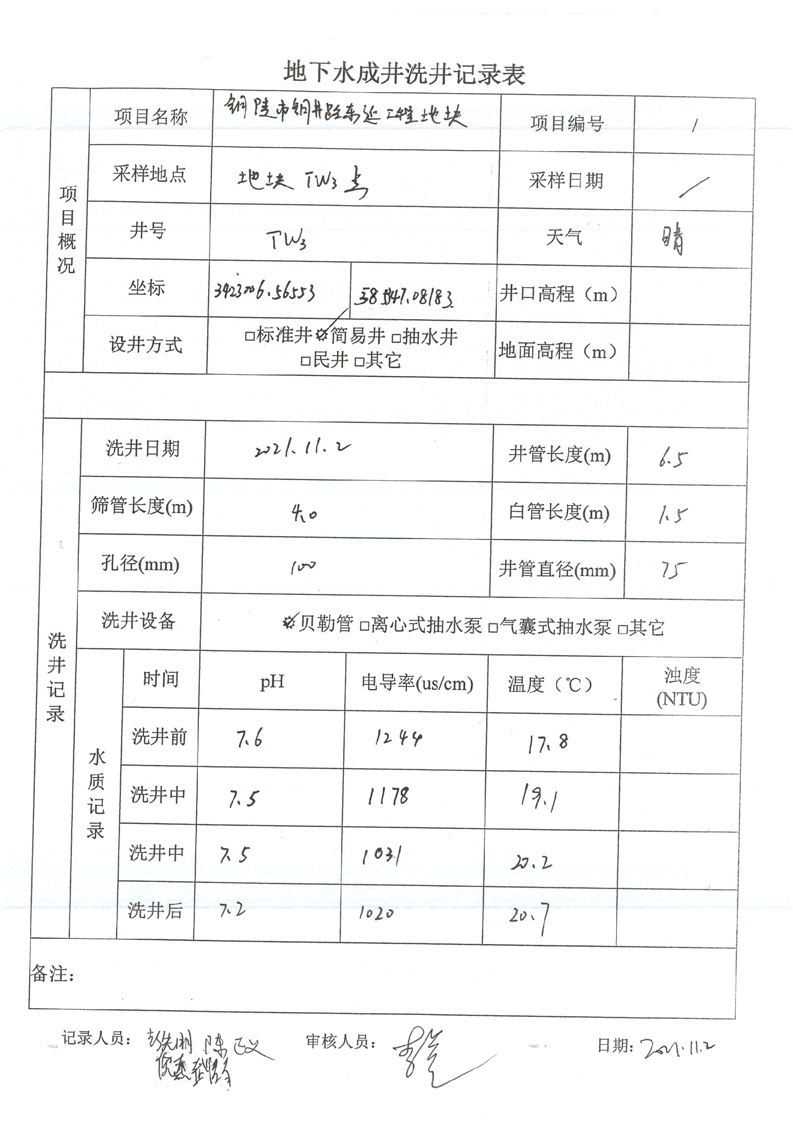 地下水成井洗井记录表
项目概况
项目名称 铜陵市铜井路东延工程地块 项目编号 /
采样地点 地块TW3点 采样日期 /
井号 TW3 天气 晴
坐标 3423706.56553 井口高程（m）
设井方式 □标准井☆简易井□抽水井 地面高程（m）
□民井□其它
洗井记录
洗井日期 2021.11.2 井管长度(m) 6.5
筛管长度(m) 4.0 白管长度(m) 1.5
孔径(mm) 100 井管直径(mm) 75
洗井设备 ☆贝勒管□离心式抽水泵□气囊式抽水泵□其它
水质记录
时间 pH 电导率(us/cm) 温度（℃） 浊度
(NTU)
洗井前 7.6 1244 17.8
洗井中 7.5 1178 19.1
洗井中 7.5 1031 20.2
洗井后 7.2 1020 20.7
备注：
记录人员： 审核人员： 日期: 2021.11.2